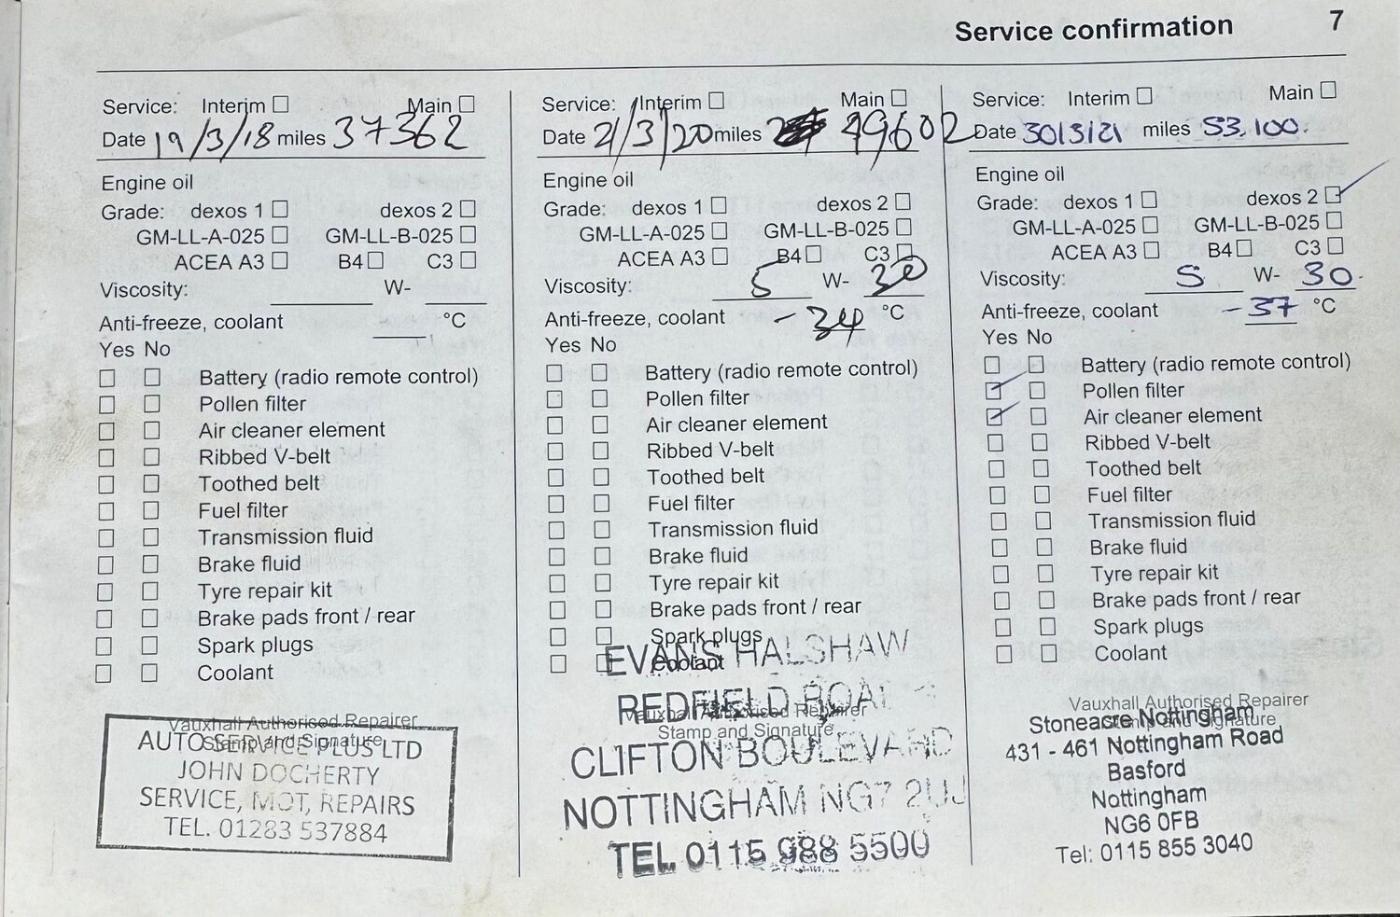 Service confirmation 7
Service: Interim Main
Date 19/3/18 miles 37362
Engine oil
Grade: dexos 1 dexos 2
GM-LL-A-025 GM-LL-B-025
ACEA A3 B4 C3
Viscosity: W-
Anti-freeze, coolant °C
Yes No
Battery (radio remote control)
Pollen filter
Air cleaner element
Ribbed V-belt
Toothed belt
Fuel filter
Transmission fluid
Brake fluid
Tyre repair kit
Brake pads front / rear
Spark plugs
Coolant
Vauxhall Authorised Repairer
Stamp and Signature
AUTO SERVICE PLUS LTD
JOHN DOCHERTY
SERVICE, MOT, REPAIRS
TEL. 01283 537884
Service: Interim Main
Date 21/3/20 miles 49602
Engine oil
Grade: dexos 1 dexos 2
GM-LL-A-025 GM-LL-B-025
ACEA A3 B4 C3
Viscosity: 5 W- 30
Anti-freeze, coolant -34 °C
Yes No
Battery (radio remote control)
Pollen filter
Air cleaner element
Ribbed V-belt
Toothed belt
Fuel filter
Transmission fluid
Brake fluid
Tyre repair kit
Brake pads front / rear
Spark plugs
Coolant
Vauxhall Authorised Repairer
Stamp and Signature
EVANS HALSHAW
REDFIELD ROAD
CLIFTON BOULEVARD
NOTTINGHAM NG7 2UJ
TEL 0115 988 5500
Service: Interim Main
Date 30/3/21 miles 53,100.
Engine oil
Grade: dexos 1 dexos 2
GM-LL-A-025 GM-LL-B-025
ACEA A3 B4 C3
Viscosity: 5 W- 30
Anti-freeze, coolant -37 °C
Yes No
Battery (radio remote control)
Pollen filter
Air cleaner element
Ribbed V-belt
Toothed belt
Fuel filter
Transmission fluid
Brake fluid
Tyre repair kit
Brake pads front / rear
Spark plugs
Coolant
Vauxhall Authorised Repairer
Stamp and Signature
Stoneacre Nottingham
431 - 461 Nottingham Road
Basford
Nottingham
NG6 0FB
Tel: 0115 855 3040